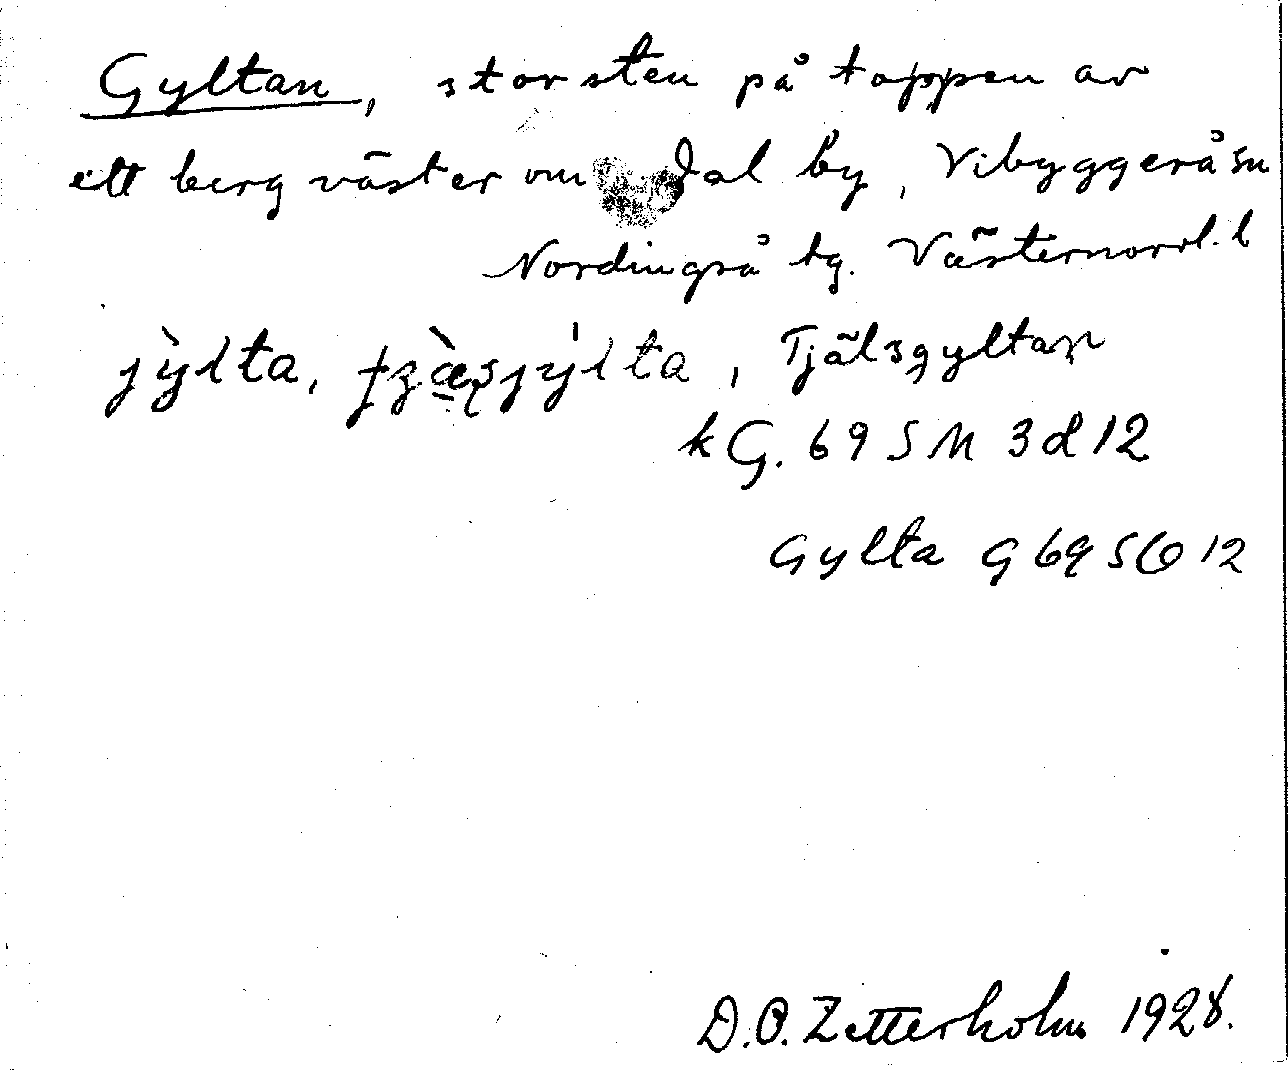 Gyltan, storsten på toppen av
ett berg väster om Dal by, Vibyggerå sn
Nordingrå tg. Västernorrl. l
jỳlta, , Tjälsgyltan
kG. 69 SM 3d12
Gylta G 69 SO 12
D.O. Zetterholm 1928.